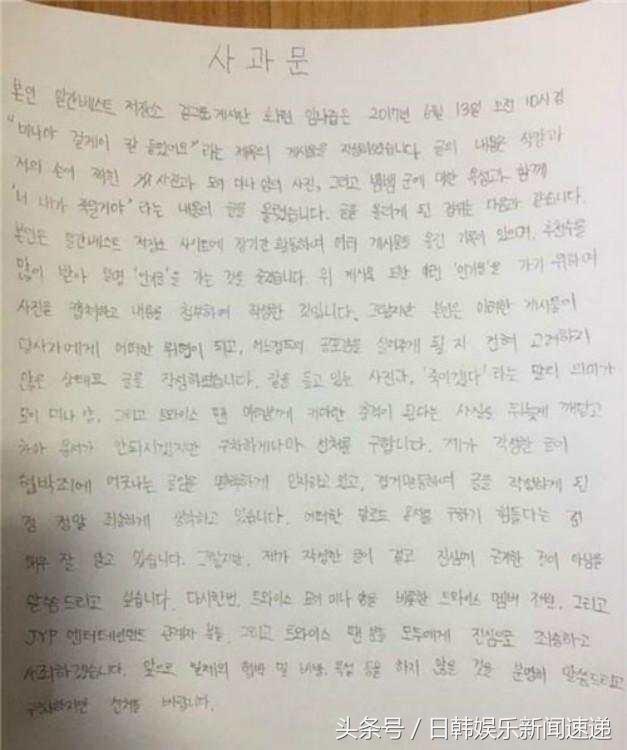 사과문
본인 일간베스트 저장소 걸그룹게시판 회원 임나즙은 2017년 6월 13일 오전 10시경
"미나야 걸게이 칼 들었어요"라는 제목의 게시물을 작성하였습니다. 글의 내용은 식칼과
저의 손이 찍힌 사진과 묘이 미나 양의 사진, 그리고 뱀뱀 군에 대한 욕설과 함께
'너 내가 죽일거야' 라는 내용의 글을 올렸습니다. 글을 올리게 된 경위는 다음과 같습니다.
본인은 일간베스트 저장소 사이트에 장기간 활동하며 여러 게시물을 올린 기록이 있으며, 추천수를
많이 받아 일명 '인기글'을 가는 것을 즐겼습니다. 위 게시물 또한 이런 '인기글'을 가기 위하여
사진을 캡처하고 내용을 첨부하여 작성한 것입니다. 그렇지만 본인은 이러한 게시물이
당사자에게 어떠한 위협이 되고, 어느정도의 공포감을 심어주게 될 지 전혀 고려하지
않은 상태로 글을 작성하였습니다. 칼을 들고 있는 사진과, '죽이겠다' 라는 말의 의미가
묘이 미나 양, 그리고 트와이스 팬 여러분께 커다란 충격이 된다는 사실을 뒤늦게 깨닫고
차마 용서가 안되시겠지만 구차하게나마 선처를 구합니다. 제가 작성한 글이
협박죄에 어긋나는 글임은 명확하게 인지하고 있고, 경거망동하여 글을 작성하게 된
점 정말 죄송하게 생각하고 있습니다. 어떠한 말로도 용서를 구하기 힘들다는 점
매우 잘 알고 있습니다. 그렇지만, 제가 작성한 글이 결코 진심에 근거한 것이 아님을
말씀드리고 싶습니다. 다시한번, 트와이스 묘이 미나 양을 비롯한 트와이스 멤버 전원, 그리고
JYP 엔터테인먼트 관계자 분들, 그리고 트와이스 팬 분들 모두에게 진심으로 죄송하고
사죄하겠습니다. 앞으로 일체의 협박 및 비방, 욕설 등을 하지 않을 것을 분명히 말씀드리고
구차하지만 선처를 바랍니다.
头条号 / 日韩娱乐新闻速递